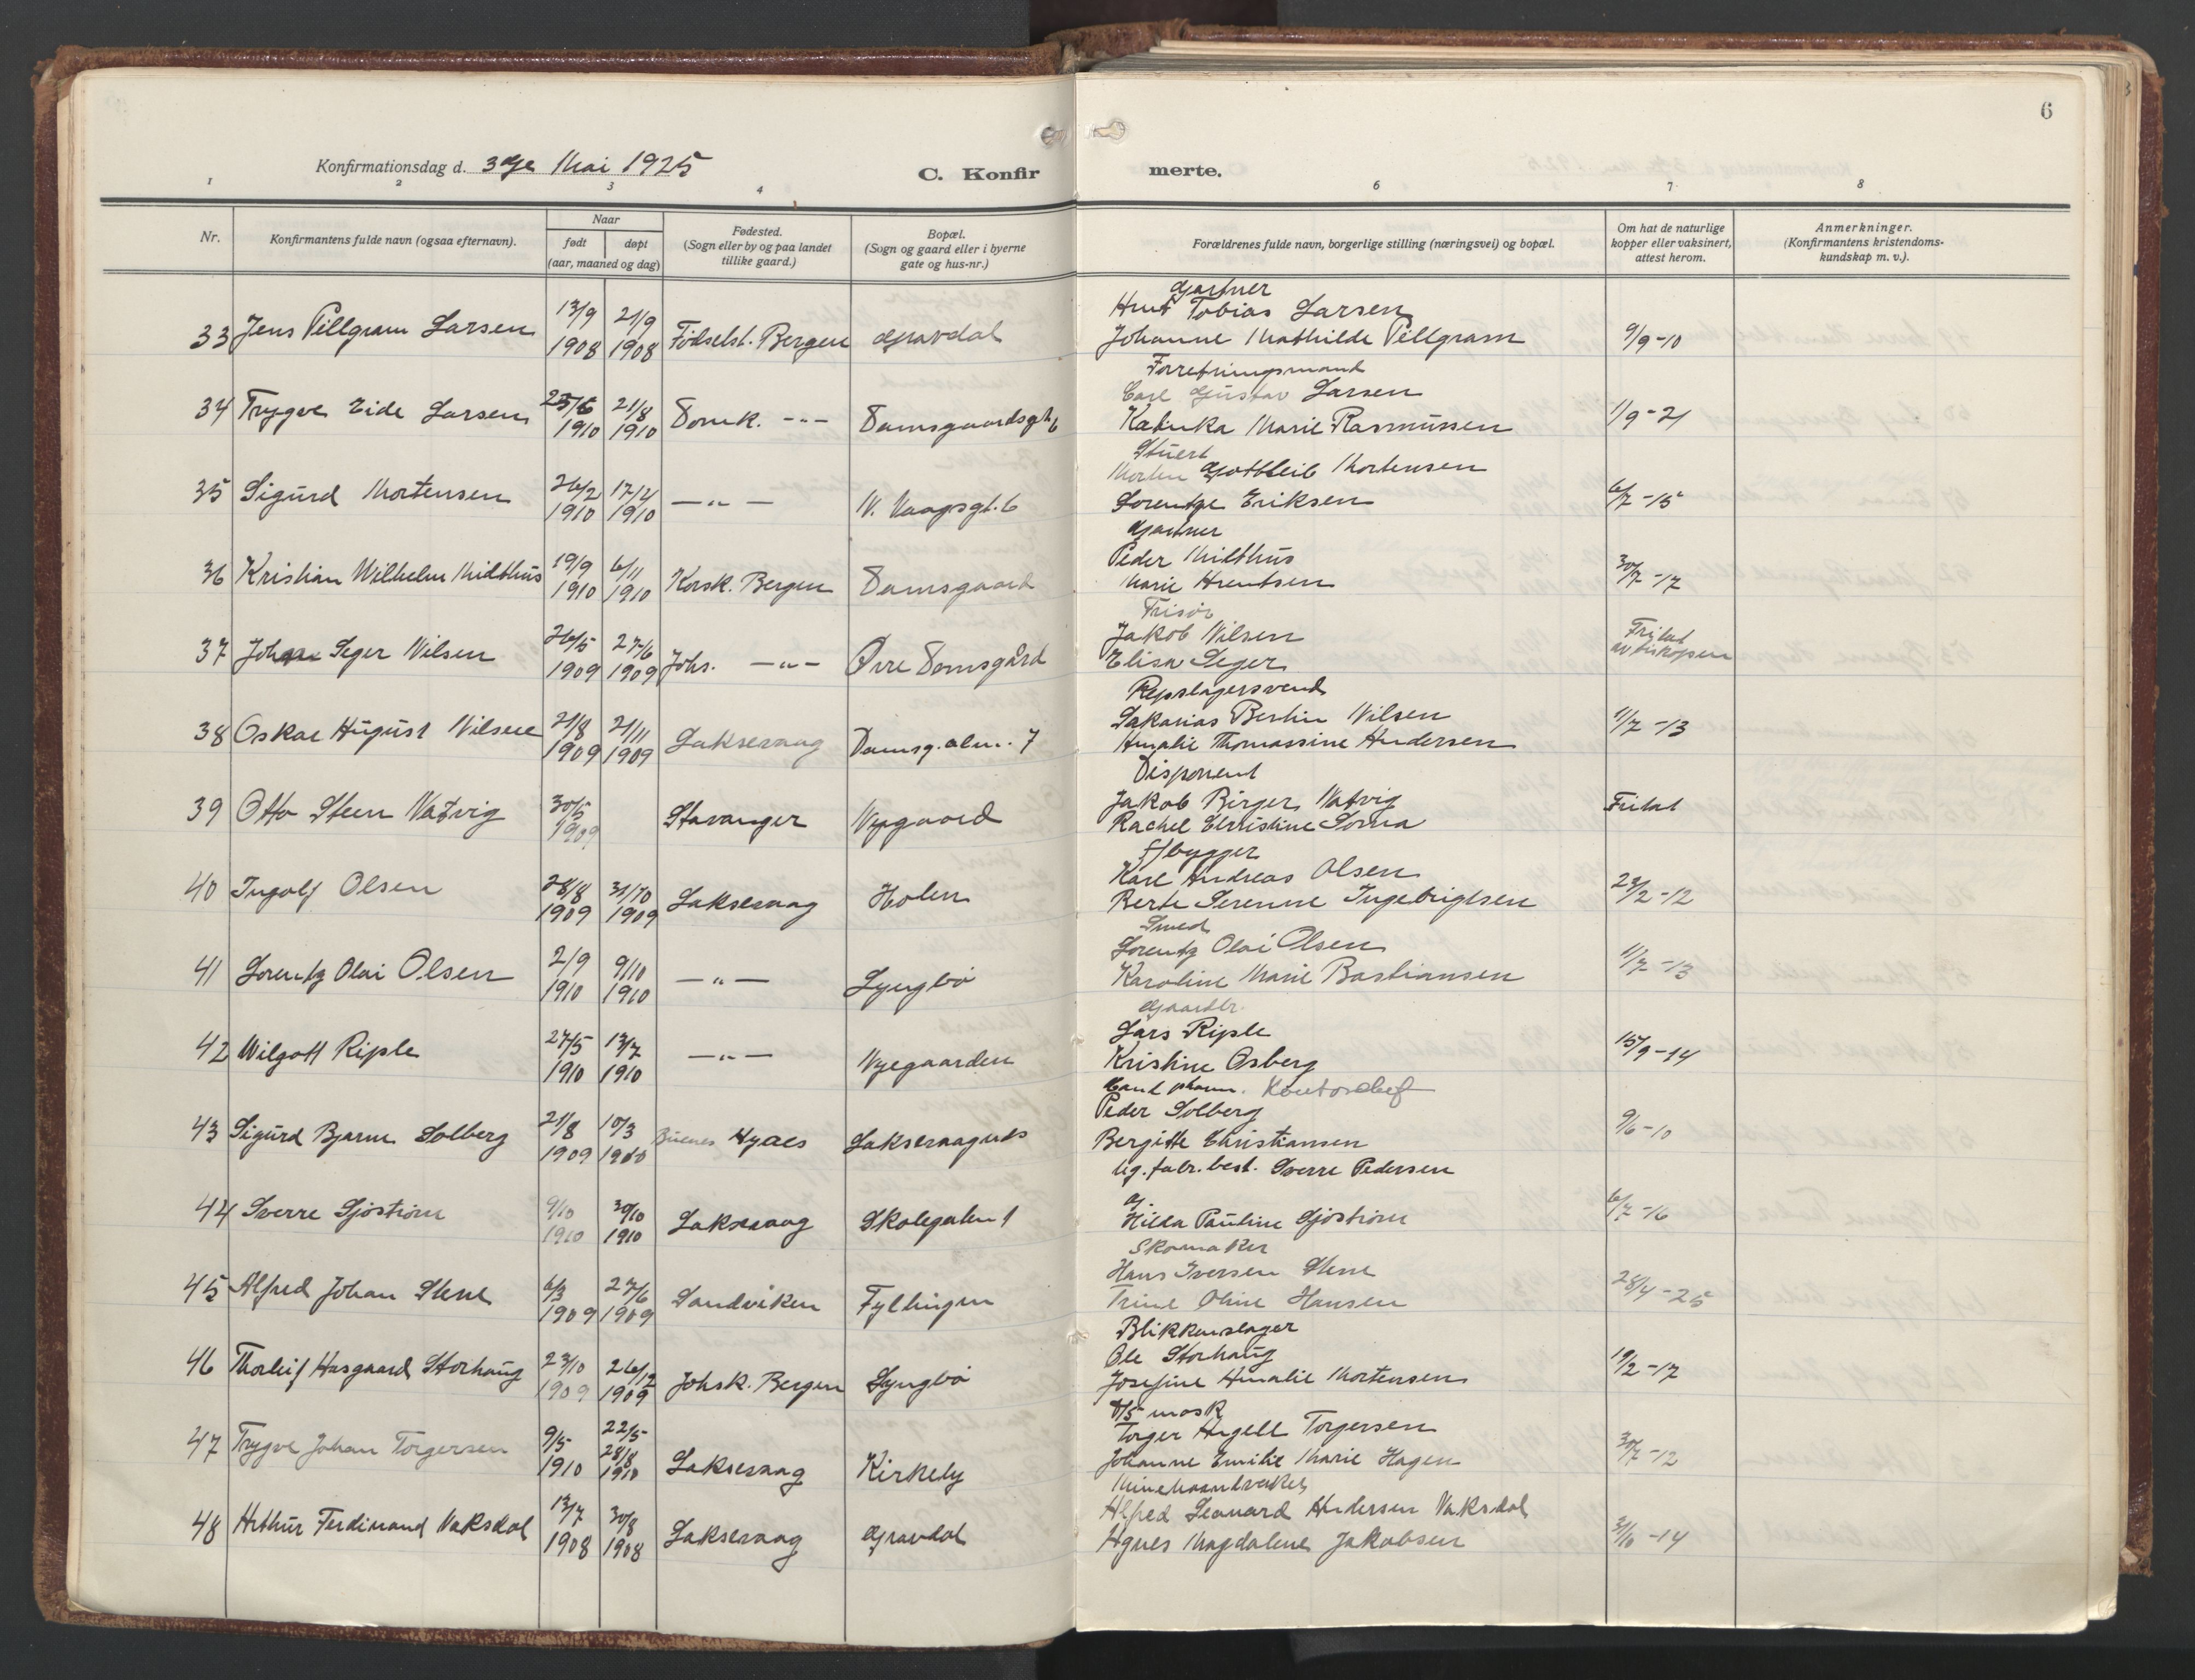 6
Konfirmationsdag d. 3dje Mai 1925
C. Konfirmerte.
1 2 3 4 6 7 8
Nr. Konfirmantens fulde navn (ogsaa efternavn). Naar født døpt (aar, maaned og dag) Fødested. (Sogn eller by og paa landet tillike gaard.) Bopæl. (Sogn og gaard eller i byerne gate og hus-nr.) Forældrenes fulde navn, borgerlige stilling (næringsvei) og bopæl. Om hat de naturlige kopper eller vaksinert, attest herom. Anmerkninger. (Konfirmantens kristendomskundskap m. v.).
Gartner
33 Jens Pillgram Larsen 13/9 1908 21/9 1908 Födselst. Bergen Gravdal Tobias Larsen
Johanne Mathilde Pillgram 9/9-10
Forretningsmand
Carl Gustav Larsen
34 Trygve Eide Larsen 1910 21/8 1910 Domk. -"- Damsgaardsgt. 6 Marie Rasmussen 1/9-21
Stuert
Morten Gottleib Mortensen
35 Sigurd Mortensen 26/2 1910 17/4 1910 -"- N. Vaagsgt. 6 Lorentze Eriksen 6/7-15
Gartner
Peder Midthus
36 Kristian Wilhelm Midthus 19/9 1910 6/11 1910 Korsk. Bergen Damsgaard Marie Arentsen 30/7-17
Frisör
Jakob Nilsen
37 Seger Nilsen 26/5 1909 27/6 1909 Johs. -"- Övre Damsgård Elisa Seger Fritat av biskopen
Repslagersvend
Sakarias Bertin Nilsen
38 Oskar August Nilsen 21/8 1909 21/11 1909 Laksevaag Damsg. alm. 7 Amalie Thomassine Andersen 1/7-13
Disponent
Jakob Birger Natvig
39 Otto Steen Natvig 30/5 1909 Stavanger Nygaard Rachel Christine Fritat
bygger
Karl Andreas Olsen
40 Ingolf Olsen 28/8 1909 31/10 1909 Laksevaag Holen Berte Serenne Ingebrigtsen 22/2-12
Smed
Lorentz Olai Olsen
41 Lorentz Olai Olsen 2/9 1910 9/10 1910 -"- Lyngbö Karoline Marie Bastiansen 1/7-13
Gaardbr.
Lars Riple
42 Wilgott Riple 27/5 1910 13/7 1910 -"- Nyegaarden Kristine Osberg 15/9-14
Kontorchef
Peder Solberg
43 Sigurd Bjarne Solberg 21/8 1909 10/3 Buenos Ayres Laksevaagnes Bergitte Christiansen 9/6-10
Ug. fabr. best. Sverre Pedersen
44 Sverre Sjöström 9/10 1910 30/10 1910 Laksevaag Skolegaten 1 g. Hilda Pauline Sjöström 6/7-16
Skomaker
Hans Iversen Stene
45 Alfred Johan Stene 6/3 1909 27/6 1909 Sandviken Fyllingen Trine Oline Hansen 28/4-25
Blikkenslager
Ole Storhaug
46 Thorleif Storhaug 23/10 1909 26/12 1909 Johsk. Bergen Lyngbö Josefine Amalie Mortensen 19/2-17
D/S mask
Torger Angell Torgersen
47 Trygve Johan Torgersen 9/5 1910 22/5 28/8 1910 Laksevaag Kirkely Johanne Emilie Marie Hagen 30/7-12
Alfred Leonard Andersen Vaksdal
48 Arthur Ferdinand Vaksdal 13/7 1908 30/8 1908 Laksevaag Gravdal Agnes Magdalene Jakobsen 3/10-14